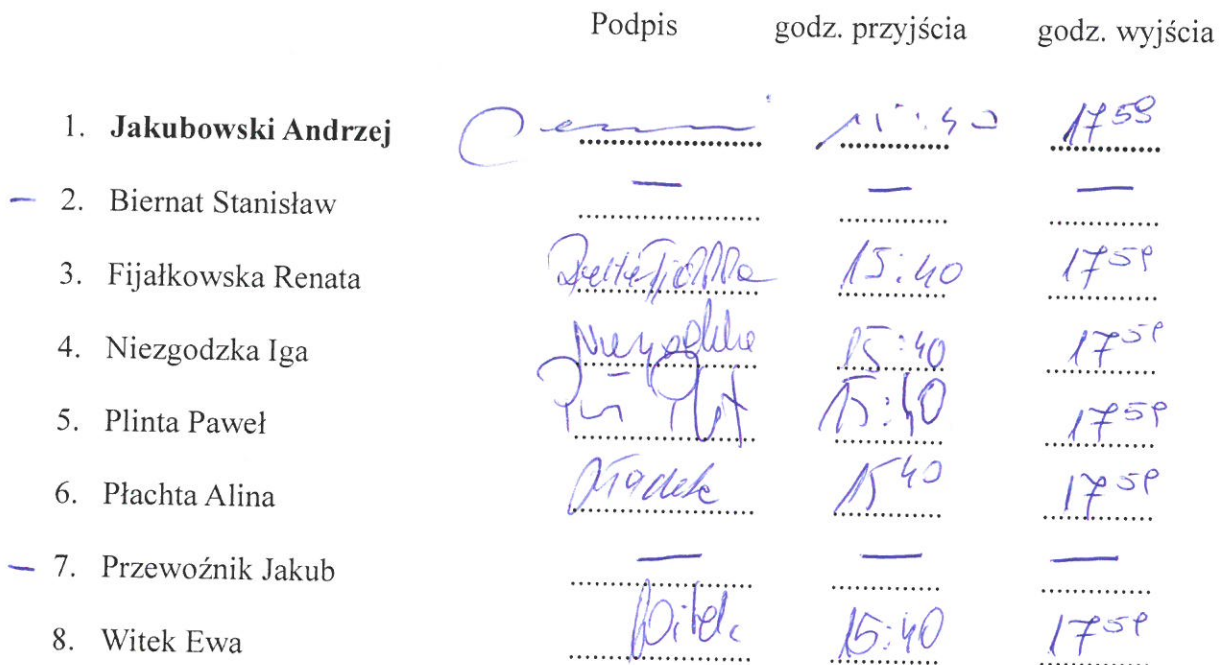 Podpis godz. przyjścia godz. wyjścia
1. Jakubowski Andrzej 15:40 17 59
– 2. Biernat Stanisław — — —
3. Fijałkowska Renata 15:40 17 59
4. Niezgodzka Iga 15:40 17 59
5. Plinta Paweł 15:40 17 59
6. Płachta Alina 15 40 17 59
– 7. Przewoźnik Jakub — — —
8. Witek Ewa Witek 15:40 17 59